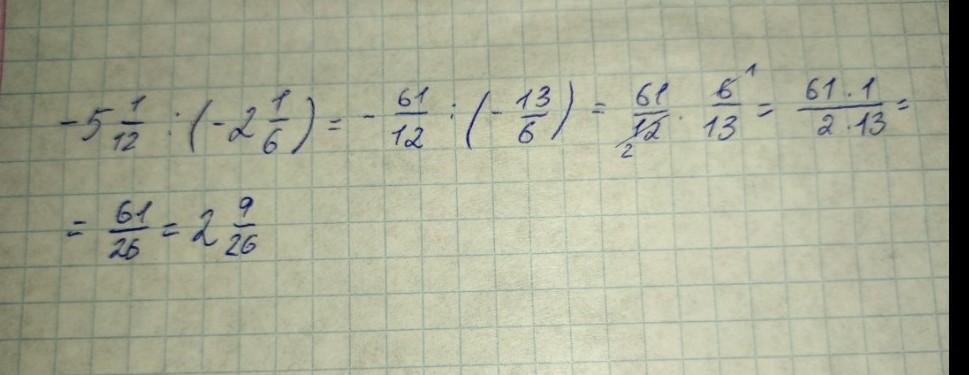 -5 1/12 : (-2 1/6) = - 61/12 : (- 13/6) = 61/12 2 · 6/13 1 = 61·1/2·13 =
= 61/26 = 2 9/26